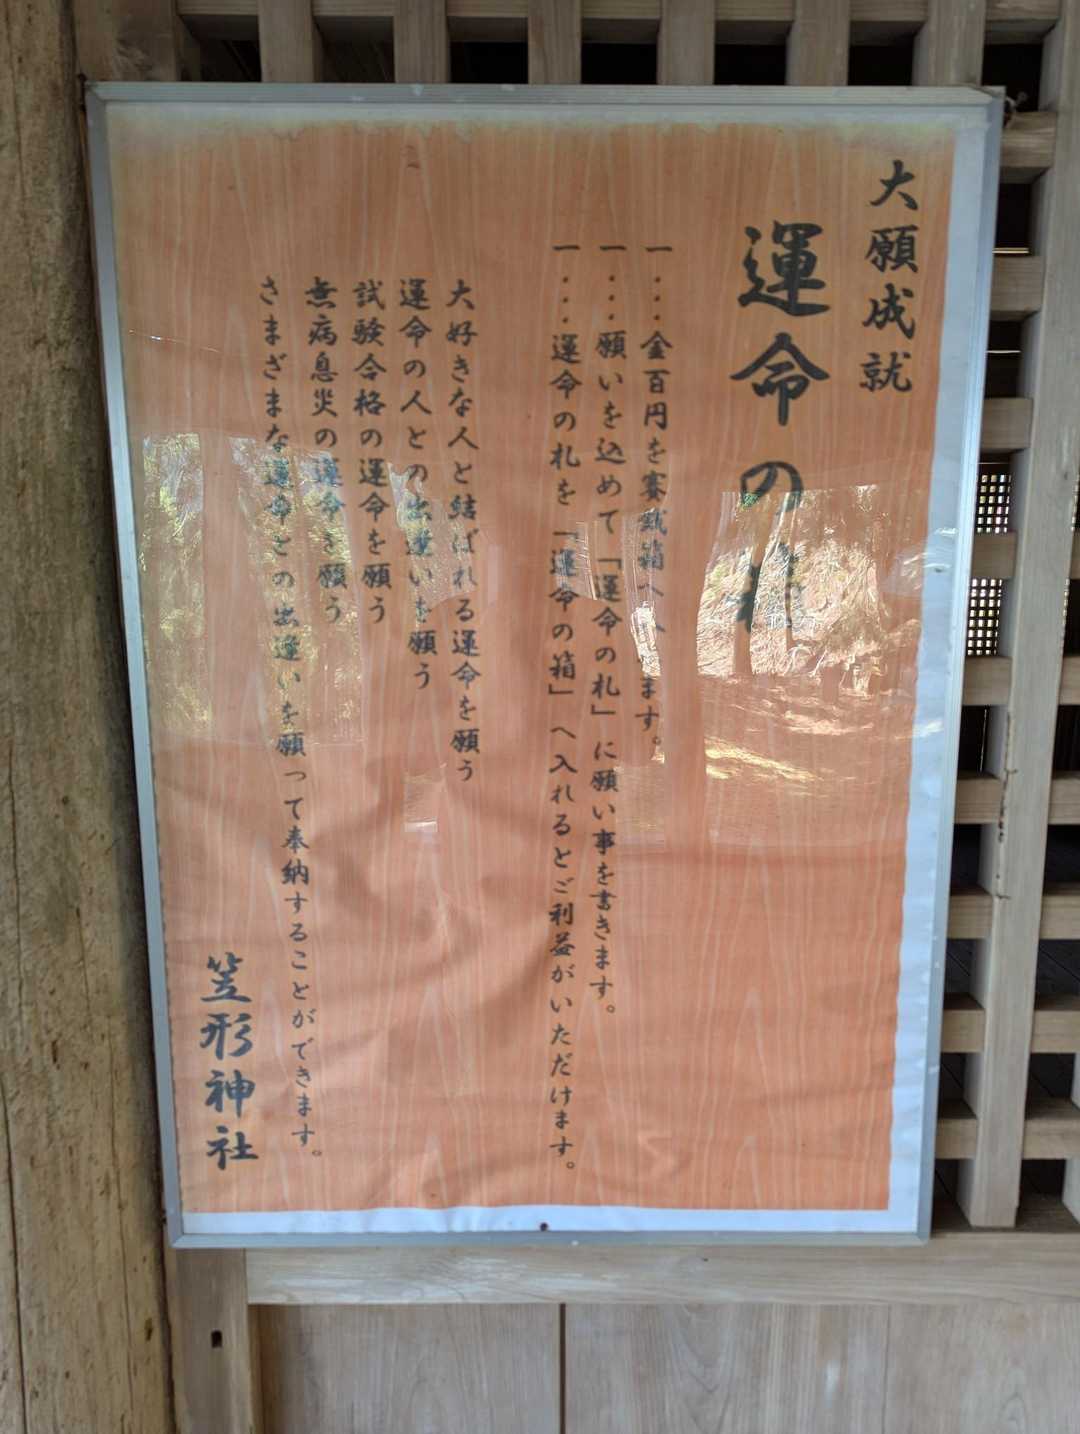 大願成就
運命の札
一...金百円を賽銭箱へ入れます。
一...願いを込めて「運命の札」に願い事を書きます。
一...運命の札を「運命の箱」へ入れるとご利益がいただけます。
大好きな人と結ばれる運命を願う
運命の人との出逢いを願う
試験合格の運命を願う
無病息災の運命を願う
さまざまな運命との出逢いを願って奉納することができます。
笠形神社